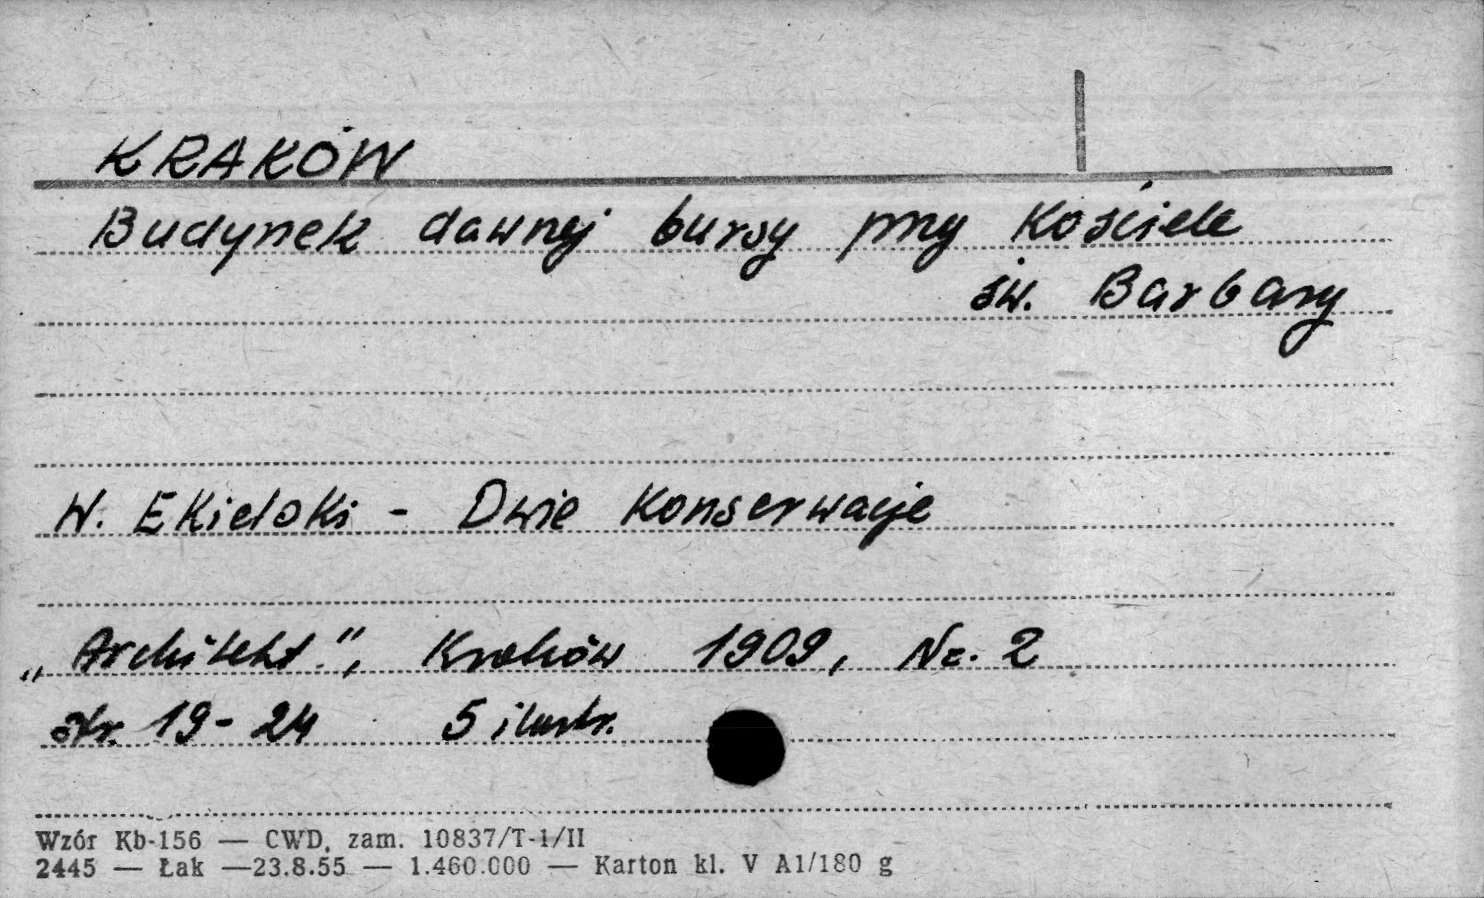 KRAKÓW
Budynek dawnej bursy przy Kościele
św. Barbary
W. Ekielski - Dwie Konserwacje
„Architekt", Kraków 1909, Nr. 2
str. 19-24 5 ilustr.
Wzór Kb-156 — CWD, zam. 10837/T-1/II
2445 — Łak —23.8.55 — 1.460.000 — Karton kl. V A1/180 g